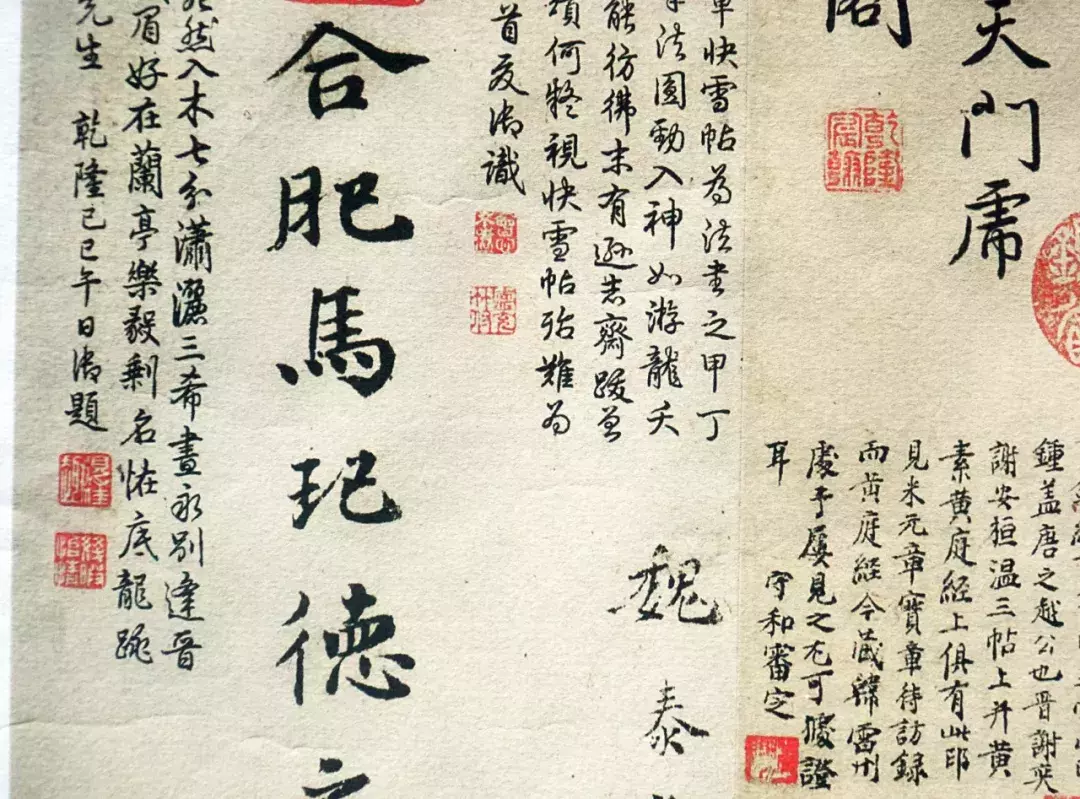 天門帚
閣
鍾蓋唐之越公也晉謝奕
謝安桓溫三帖上并黄
素黄庭經上俱有此印
見米元章寶章待訪錄
而黄庭經今藏韓宙州
處予屢見之尤可據證
耳
守和審定
乾隆
魏
泰
快雪帖為法書之甲丁
法圓勁入神如游龍夭
能彷彿未有遜志齋跋曾
何擬視快雪帖殆難為
首夏御識
合肥馬玘德
然入木七分瀟灑三希晝永別逢晉
眉好在蘭亭樂毅剩名恠底龍跳
先生
乾隆己巳午日御題